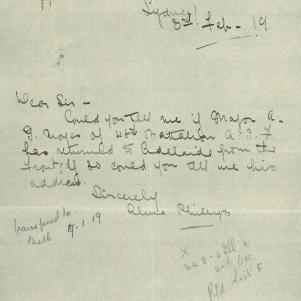 Sydney
3rd Feb - 19
Dear Sir -
Could you tell me if Major A-
Noyes of 44th Battalion A. I. F
has returned to Adelaide from the
Front; If so could you tell me his
address.
Sincerely
Phillips
transferred to
Melb 17.1.19
X
448
2nd
Rtd List F